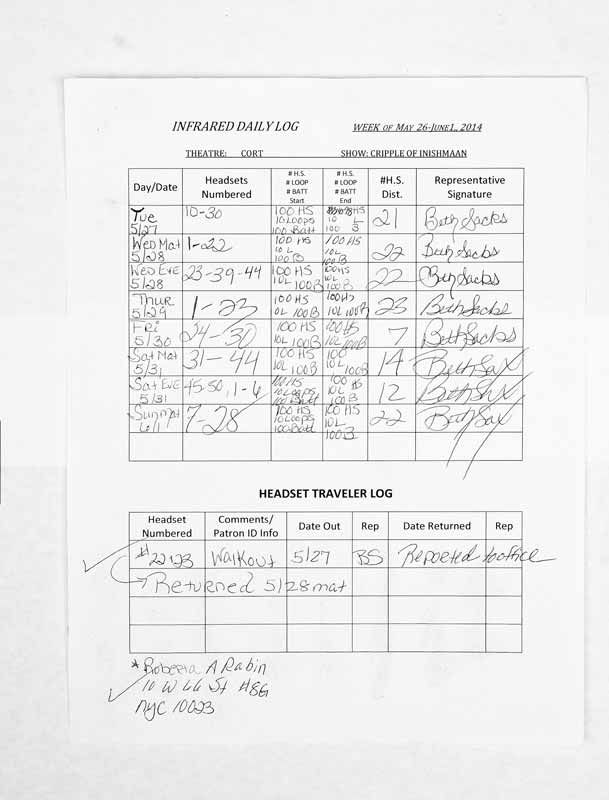 INFRARED DAILY LOG WEEK OF MAY 26-JUNE1, 2014
THEATRE: CORT SHOW: CRIPPLE OF INISHMAAN
Day/Date Headsets Numbered # H.S. # LOOP # BATT Start # H.S. # LOOP # BATT End #H.S. Dist. Representative Signature
Tue 5/27 10-30 100 HS 10 Loops 100 Batt HS 10 L 100 B 21 Beth Sacks
Wed Mat 5/28 1-22 100 HS 10 L 100 B 100 HS 10L 100B 22 Beth Sacks
Wed Eve 5/28 23-39-44 100 HS 10L 100B 100HS 10L 100B 22 Beth Sacks
Thur 5/29 1-23 100 HS 10L 100B 100HS 10L 100B 23 Beth Sacks
Fri 5/30 24-30 100 HS 10L 100B 100HS 10L 100B 7 Beth Sacks
Sat Mat 5/31 31-44 100 HS 10L 100B 100 10L 100B 14 Beth Sax
Sat Eve 5/31 45-50, 1-6 100 HS 10 Loops 100 Batt 100 HS 10 L 100 B 12 Beth Sax
Sun mat 6/1 7-28 100 HS 10 Loops 100 Batt 100 HS 10 L 100B 22 Beth Sax
HEADSET TRAVELER LOG
Headset Numbered Comments/ Patron ID Info Date Out Rep Date Returned Rep
# 22123 Walkout 5/27 BS Reported to office
Returned 5/28 mat
* Roberta A Rabin
10 W 66 St #8G
NYC 10023